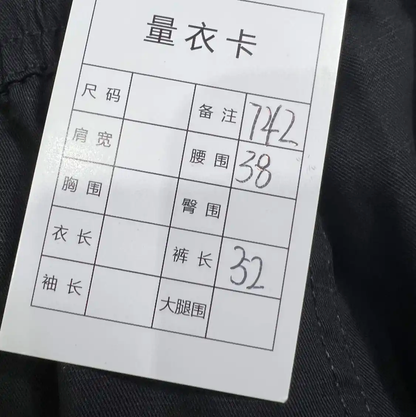 量衣卡
尺码 备注 742
肩宽 腰围 38
胸围 臀围
衣长 裤长 32
袖长 大腿围